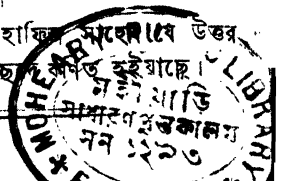 হাফিজ সাহেব যে উত্তর
হইয়াছে।
MOHEARY LIBRARY
মহিয়াড়ি
সাধারণ পুস্তকালয়
সন ১২৯৩